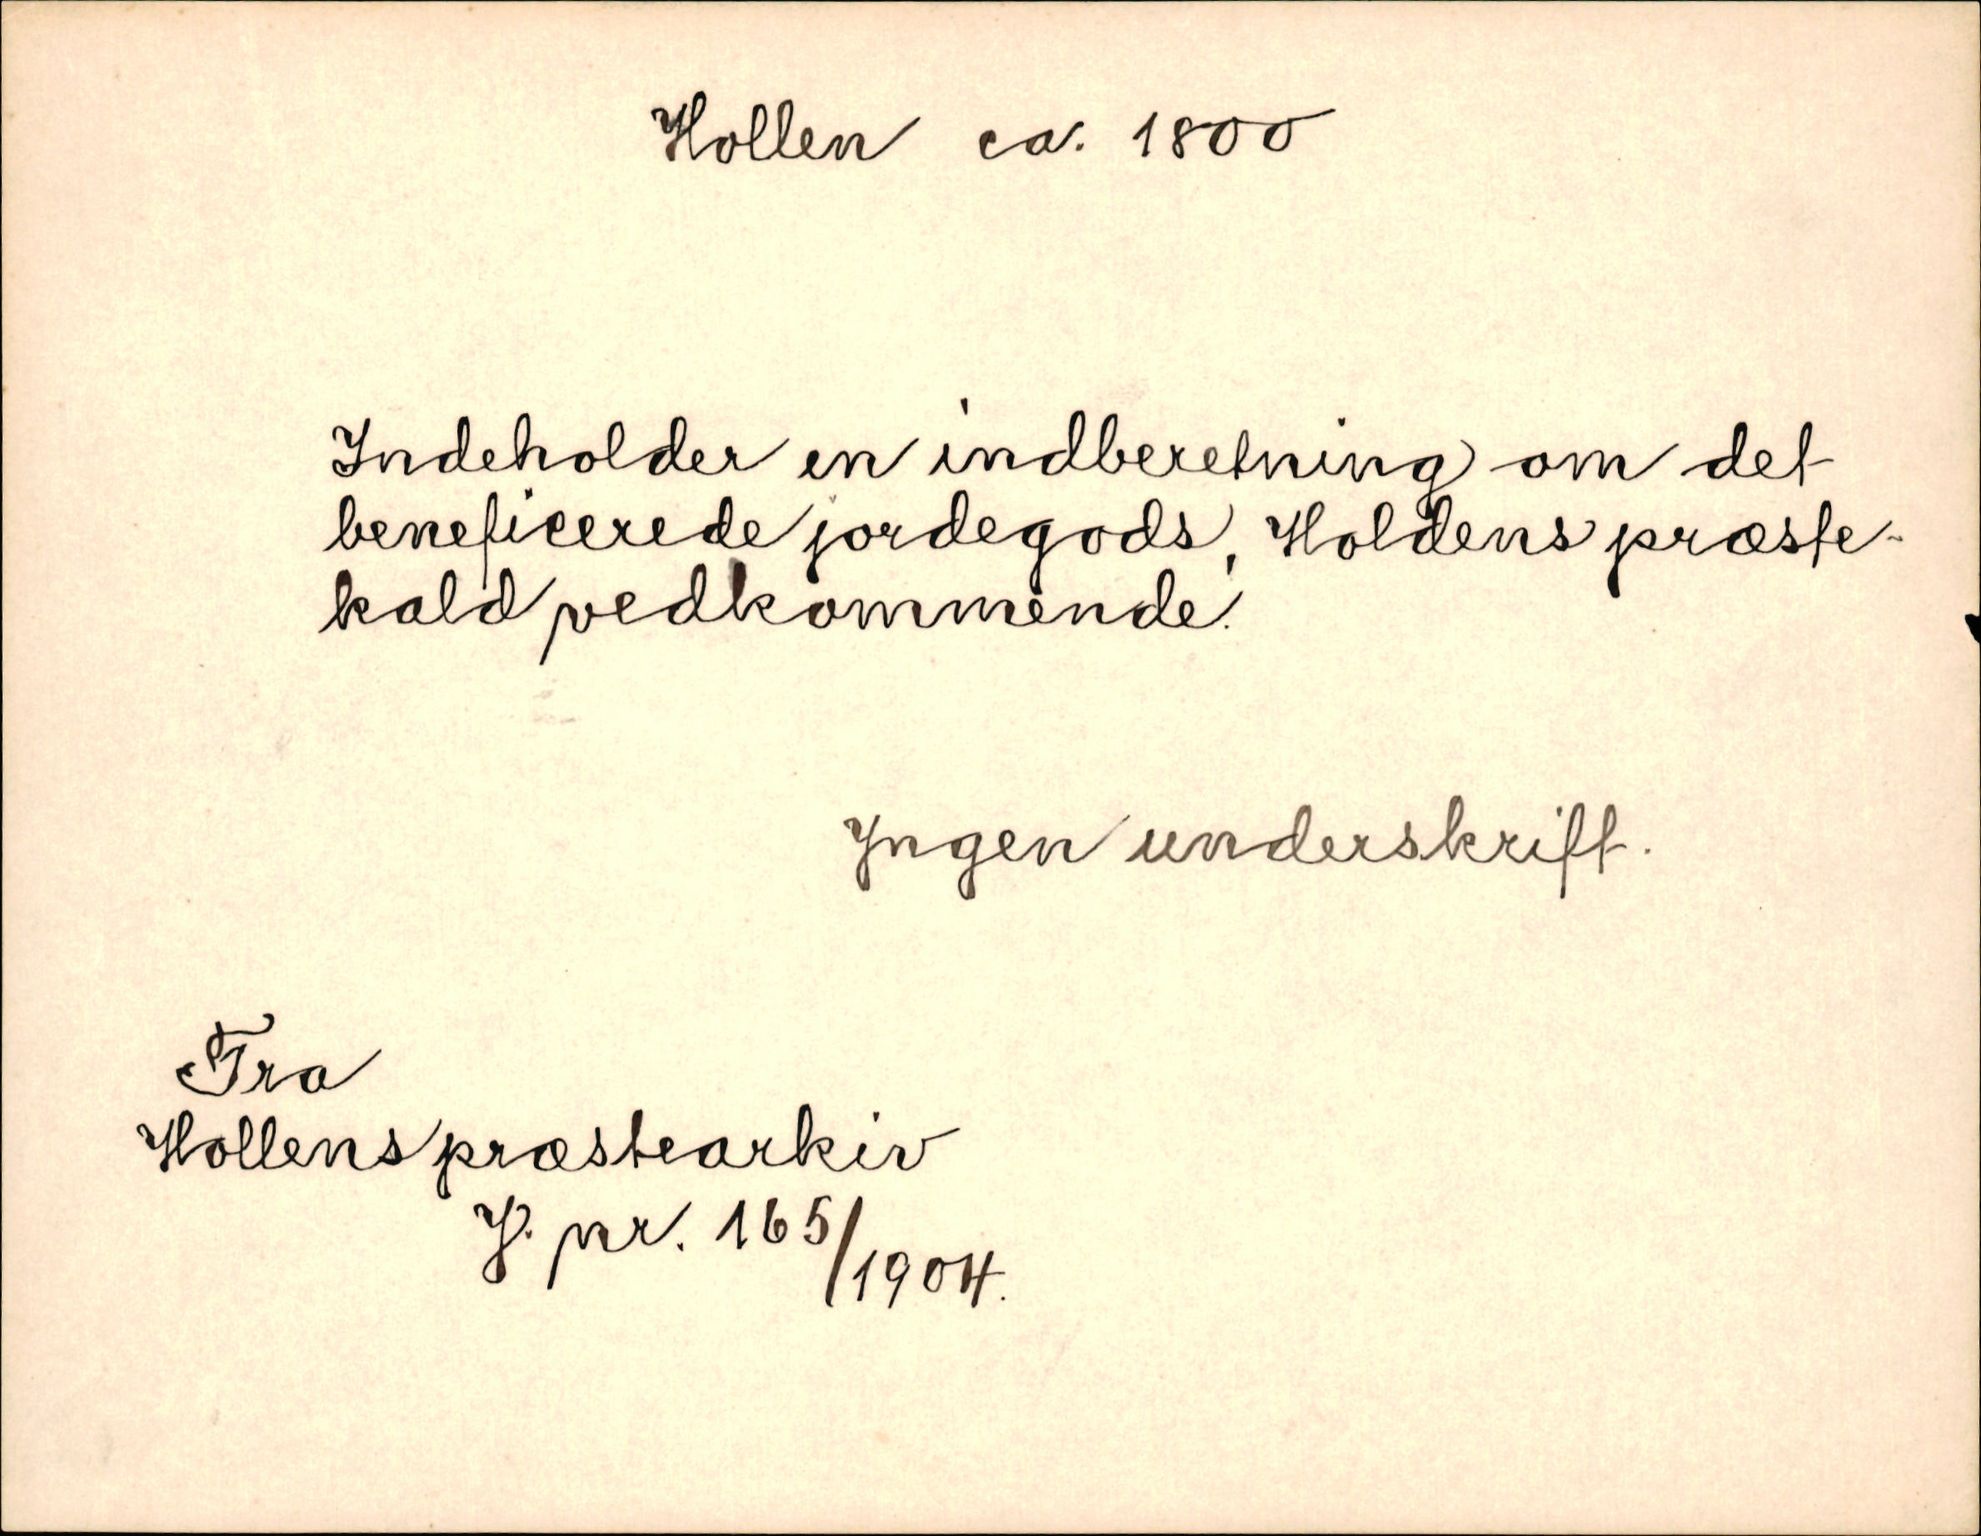 Hollen ca. 1800
Indeholder en indberetning om det
beneficerede jordegods, Holdens præste-
kald vedkommende.
Ingen underskrift.
Fra
Hollens præstearkiv
J. nr. 165/1904.